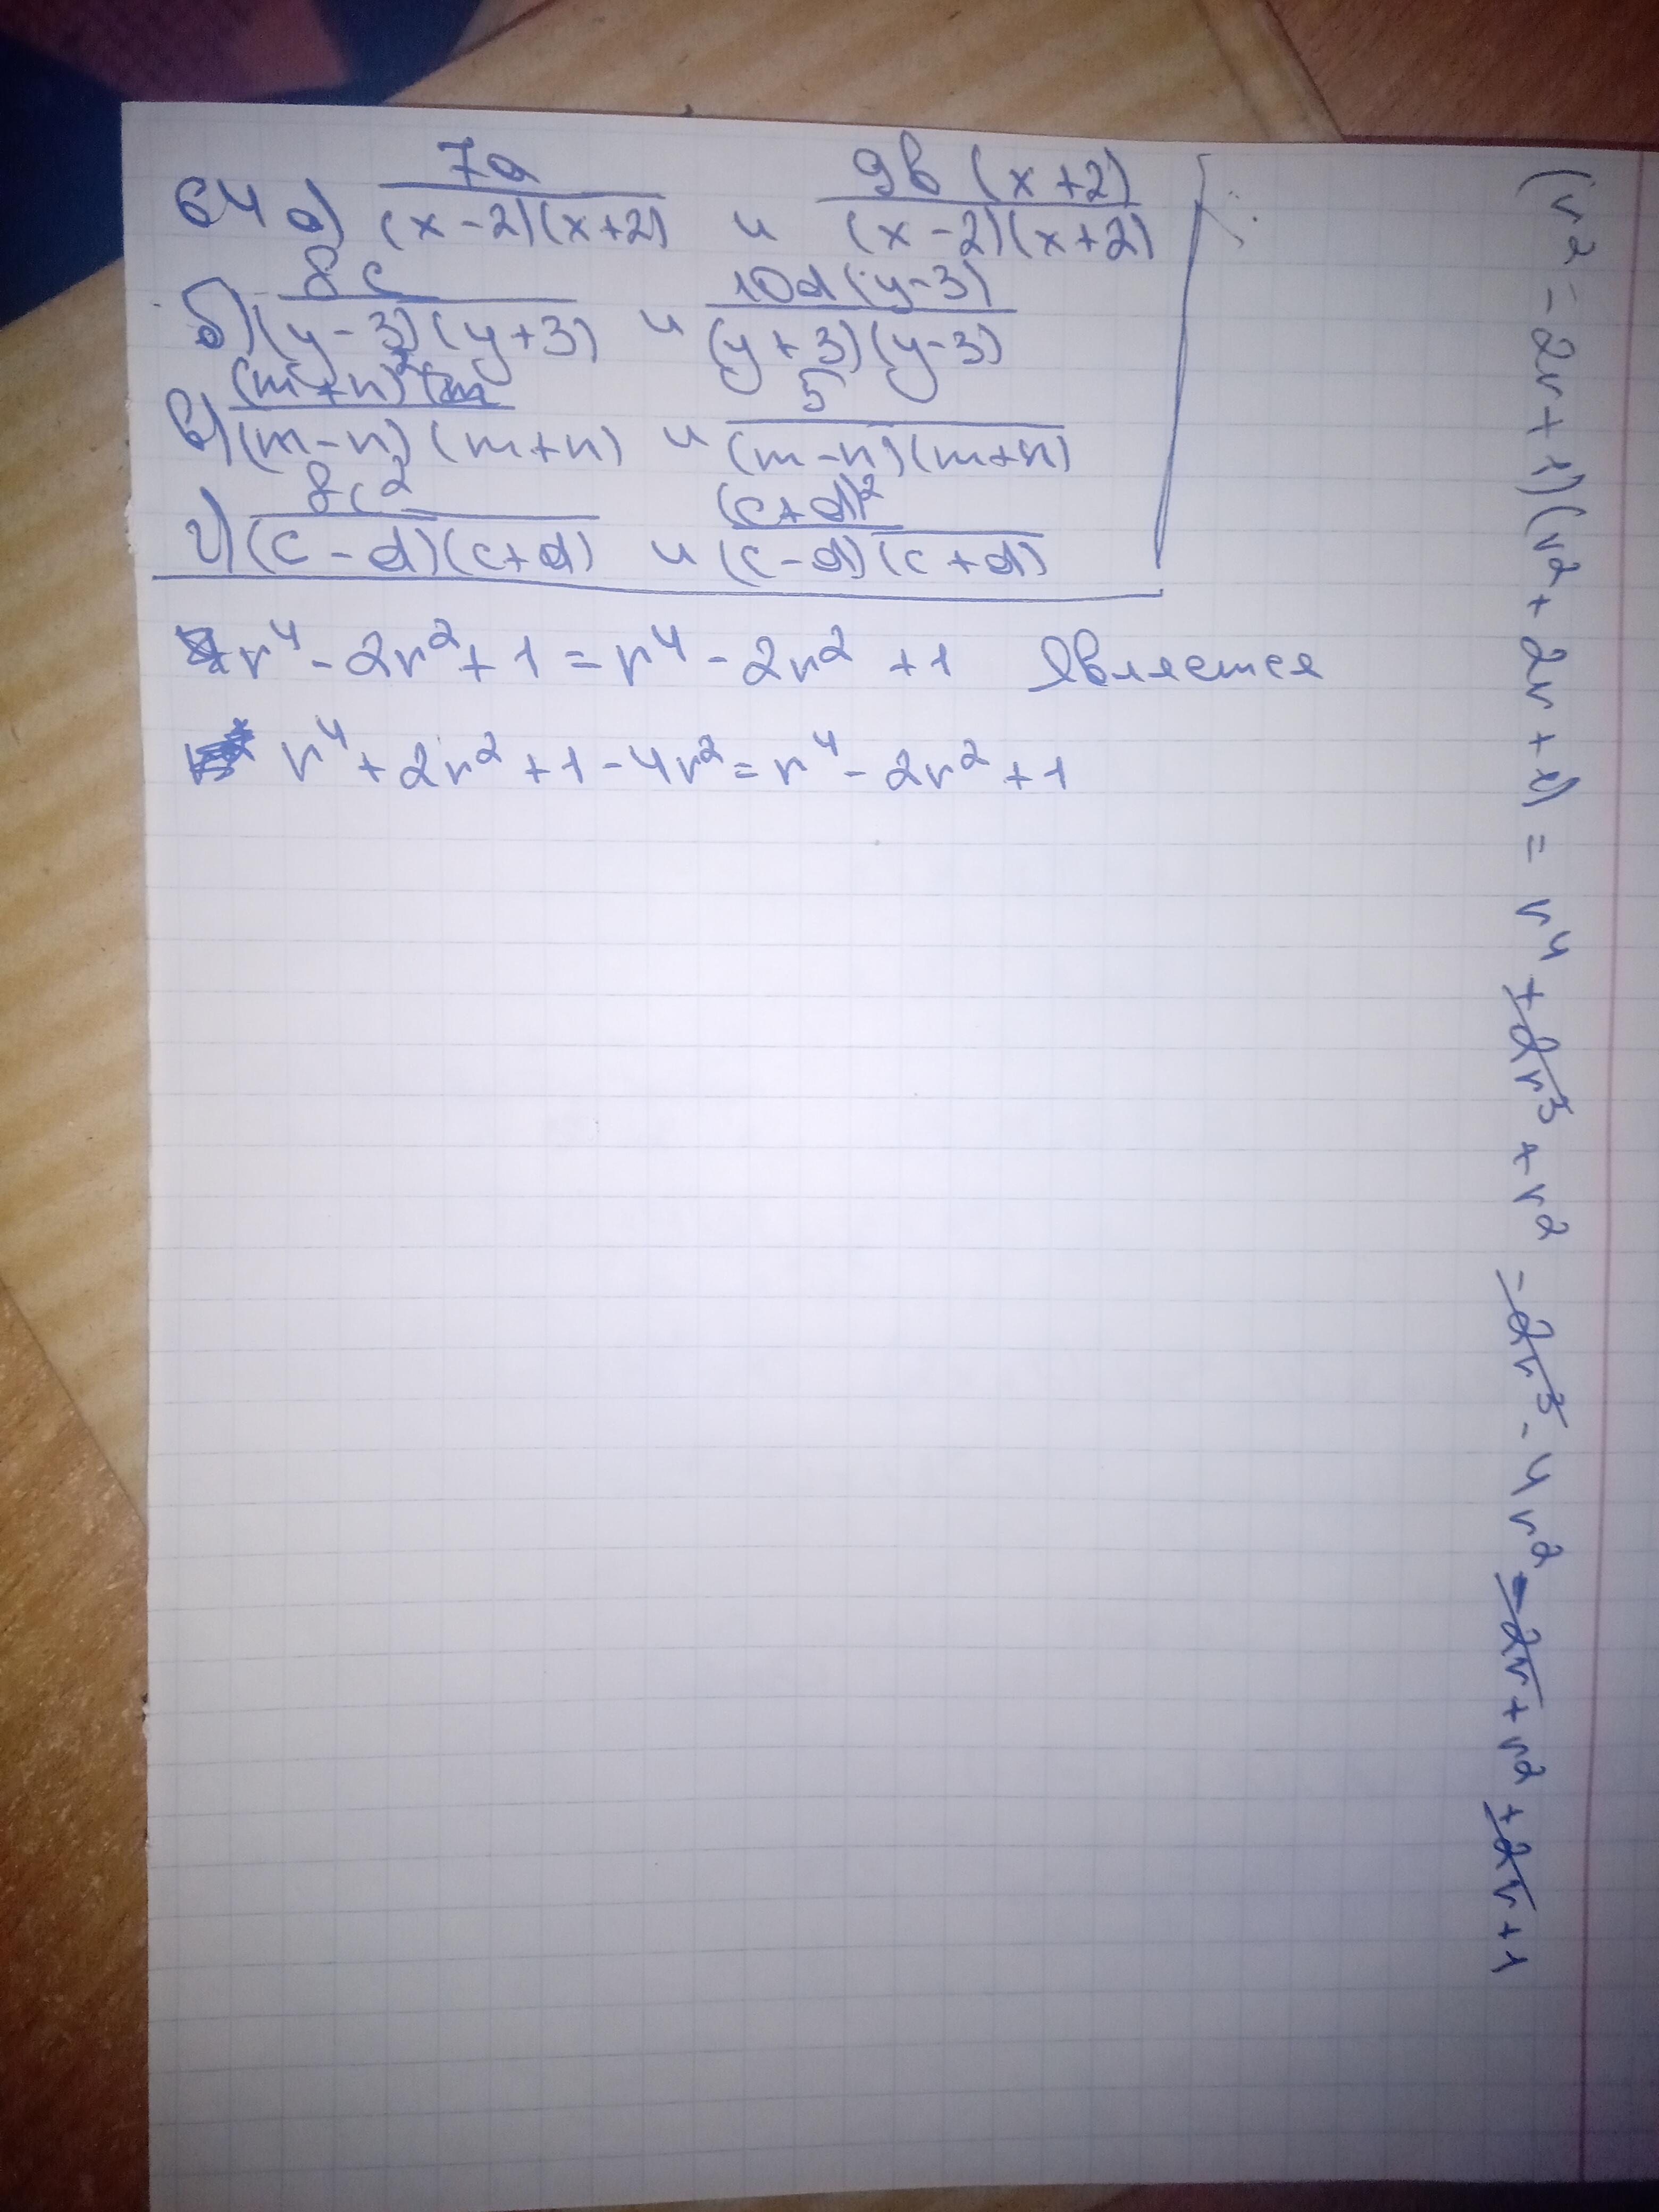 64 а) 7a/((x-2)(x+2)) и 9b(x+2)/((x-2)(x+2))
б) 8c/((y-3)(y+3)) и 10d(y-3)/((y+3)(y-3))
в) (m+n)²/((m-n)(m+n)) и 5/((m-n)(m+n))
г) 8c²/((c-d)(c+d)) и (c+d)²/((c-d)(c+d))
r⁴-2r²+1=r⁴-2r²+1 Является
r⁴+2r²+1-4r²=r⁴-2r²+1
(r²-2r+1)(r²+2r+1)=r⁴+2r³+r²-2r³-4r²-2r+r²+2r+1